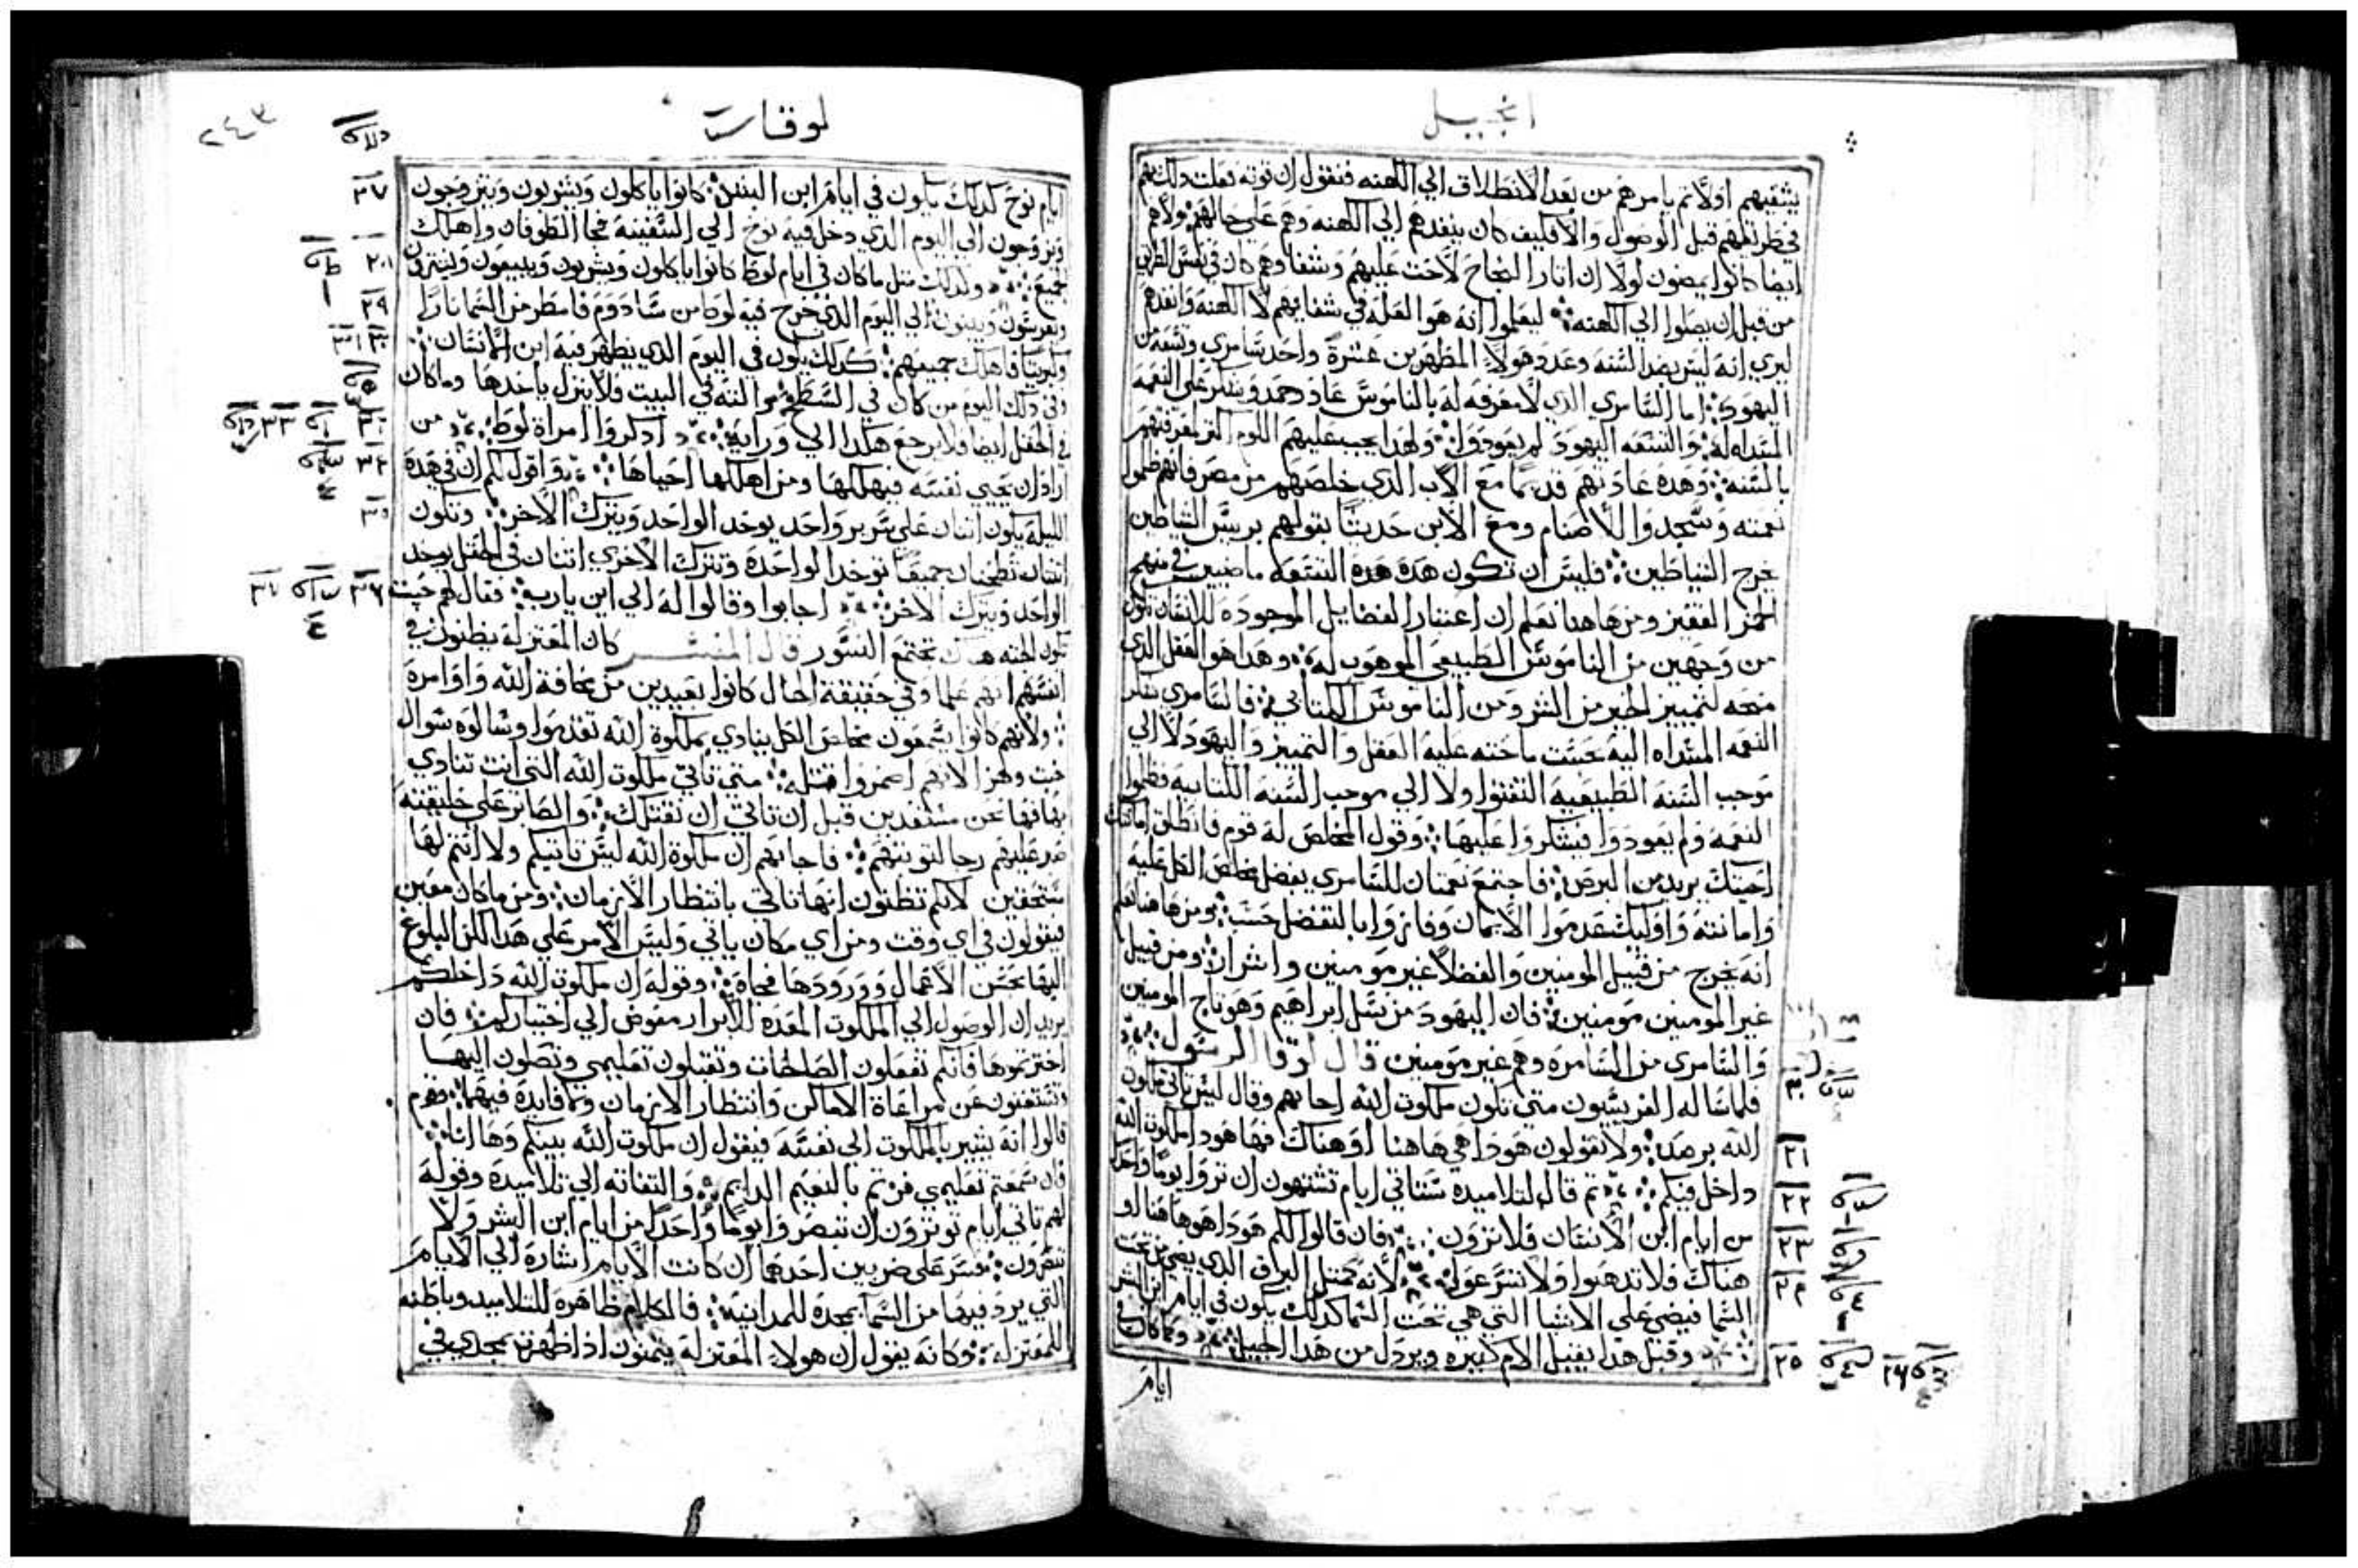 انجيل
يشفيهم اولا ثم يامرهم من بعد الانطلاق الي الكهنه فنقول ان قوته فعلت ذلك بهم
في طريقهم قبل الوصول والا فكيف كان ينفدهم الي الكهنه وهم علي حالهم ولاهم
ايضا كانوا يمضون لولا ان اثار النجاح لاحت عليهم وشفاوهم كان في نفس الطريق
من قبل ان يصلوا الي الكهنه ليعلموا انه هو العله في شفايهم لا الكهنه وانفدهم
ليري انه ليس بضد السنه وعدد هولاء المطهرين عشرة واحد سامري وتسعه من
اليهود اما السامري الذي لا معرفه له بالناموس عاد وحمد وشكر علي النعمه
المسداه له والتسعه اليهود لم يعودوا ولهدا يجب عليهم اللوم اكثر لمعرفتهم
بالسنه وهده عادتهم قديما مع الاب الذي خلصهم من مصر فانهم ظلموا
نعمته وسجدوا للاصنام ومع الابن حديثا بقولهم بريس الشياطين
يخرج الشياطين فليس ان تكون هده هده التسعه ما ضيين في منهج
الخير الفقير ومن هاهنا نعلم ان اعتبار الفضايل الموجوده للانسان تكون
من وجهين من الناموس الطبيعي الموهوب له وهدا هو العقل الدي
منحه لتمييز الخير من الشر ومن الناموس الكتابي فالسامري شكر
النعمه المسداه اليه بحسب ما حثه عليه العقل والتمييز واليهود لا الي
موجب السنه الطبيعيه التفتوا ولا الي موجب السنه الكتابيه فظلموا
النعمه ولم يعودوا فيشكروا عليها وقول المخلص له قوم فانطلق امانتك
احيتك يريد من البرص فاجتمع نعمتان للسامري بفضل مخلص الكل عليه
وامانته واوليك عدموا الايمان وفازوا بالتفضل حسب ومن هاهنا نعلم
انه يخرج من قبيل المومنين والفضلا غير مومنين واشرار ومن قبيل
غير المومنين مومنين فان اليهود من نسل ابراهيم وهو تاج المومنين
والسامري من السامره وهم غير مومنين قال لوقا الرسول
فلما ساله الفريسيون متي تكون ملكوت الله اجابهم وقال ليس تاتي ملكوت
الله برصد ولا يقولون هودا هي هاهنا او هناك فها هودا ملكوت الله
٢١
داخل فيكم ثم قال لتلاميده ستاتي ايام تشتهون ان تروا يوما واحدا
٢٢
من ايام ابن الانسان فلا ترون فان قالوا لكم هودا هو هاهنا او
٢٣
هناك فلا تدهبوا ولا تسرعوا لانه كمثل البراق الدي يضي من تحت
السما فيضي علي الاشيا التي هي تحت السما كدلك يكون في ايام ابن البشر
وقبل هدا يقبل الام كثيره ويردل من هدا الجيل وكما كان في
٢٥ ٢٦
ايام
لوقا
٢٤٣
ايام نوح كدلك يكون في ايام ابن البشر كانوا ياكلون ويشربون ويتزوجون
٢٧
ويزوجون الي اليوم الدي دخل فيه نوح الي السفينه فجا الطوفان واهلك
جميع ولدلك مثل ما كان في ايام لوط كانوا ياكلون ويشربون ويبيعون ويشترون
ويغرسون ويبنون الي اليوم الدي خرج فيه لوط من سادوم فامطر من السما نارا
٢٩
وكبريتا فاهلك جميعهم كدلك يكون في اليوم الدي يظهر فيه ابن الانسان
وفي دلك اليوم من كان في السطح والته في البيت فلا ينزل ياخدها وما كان
في الحقل ايضا فلا يرجع هكدا الي ورايه ادكروا امراة لوط من
٣٣
اراد ان يحيي نفسه فيهلكها ومن اهلكها احياها واقول لكم ان في هده
الليلة يكون اتنان علي سرير واحد يوخد الواحد ويترك الاخر وتكون
٣٥
اتنتان تطحنان جميعا توخد الواحدة وتترك الاخري اتنان في الحقل يوخد
الواحد ويترك الاخر اجابوا وقالوا له الي اين يارب فقال لهم حيت
٣٦ ٣٧
تكون الجته هناك تجتمع النسور قال المفسر كان المعتزلة يظنون في
انفسهم انهم علما وفي حقيقة الحال كانوا بعيدين من مخافة الله واوامرة
ولانهم كانوا يسمعون مخلص الكل ينادي بملكوة الله تقدموا وسالوه سوال
خبت وهزا لانهم اضمروا قتله متي تاتي ملكوت الله التي انت تنادي
بها فها نحن مستعدين قبل ان تاتي ان نقتلك والصابر علي خليقته
صبر عليهم رجا لتوبتهم فاجابهم ان ملكوة الله ليس تاتيكم ولا انتم لها
مستحقين لانكم تظنون انها تاتي بانتظار الازمان ومن ما كان معين
فيقولون في اي وقت ومن اي مكان ياتي وليس الامر علي هدا لكن البلوغ
اليها بحسن الاعمال وورودها فجاة وقوله ان ملكوت الله داخلكم
يريد ان الوصول الي الملكوت المعده للابرار مفوض الي اختياركم فان
اخترتموها فانكم تفعلون الصالحات وتقبلون تعليمي وتصلون اليها
وتستغنون عن مراعاة الاماكن وانتظار الازمان وما فايدة فيهما وقوم
قالوا انه يشير بالملكوت الي نفسه فيقول ان ملكوت الله بينكم وها انا
فان سمعتم تعليمي فزتم بالنعيم الدايم والتفاته الي تلاميدة وقوله
لهم تاتي ايام توترون ان تبصروا يوما واحدا من ايام ابن البشر ولا
تنظرون يفسر علي ضربين احدهما ان كانت الايام اشارة الي الايام
التي يرد فيها من السما بمجدة للمدانيه فالكلام ظاهرة للتلاميد وباطنه
للمعتزلة وكانه يقول ان هولاء المعتزلة يتمنون ادا ظهرت بمجدي في